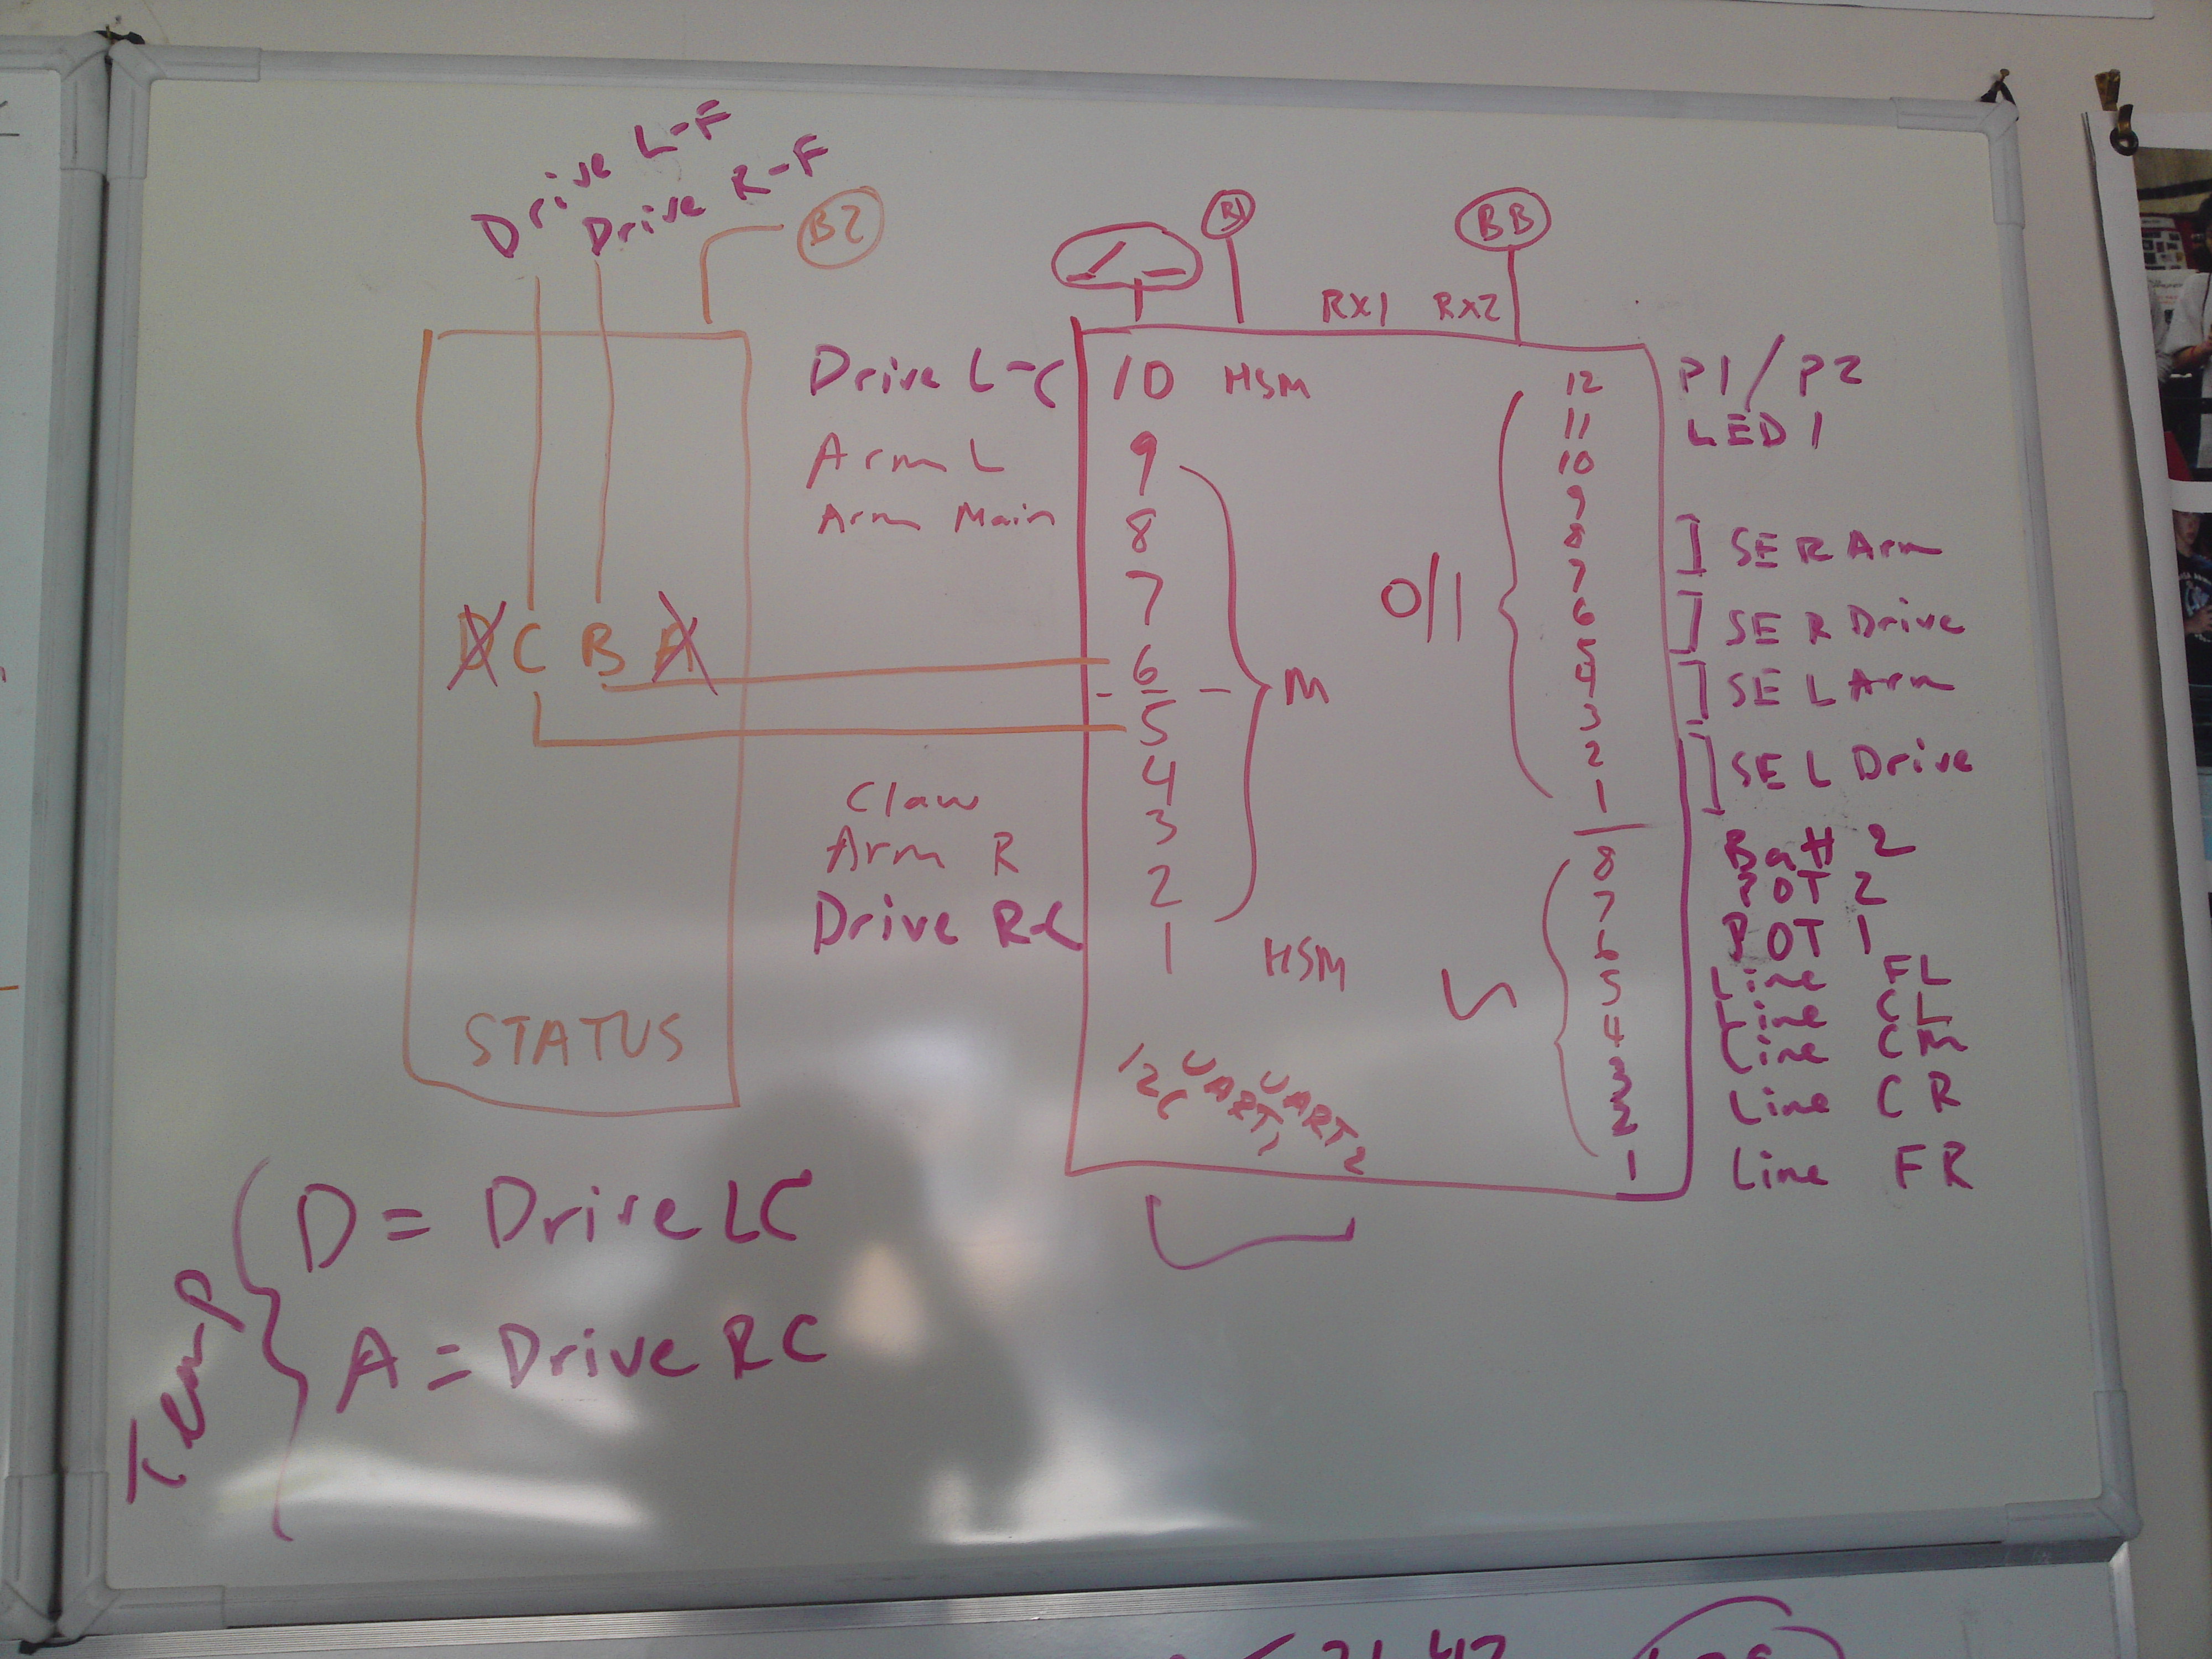 Drive L-F
Drive R-F
B2
D C B A
STATUS
B1
BB
RX1 RX2
Drive L-C 10 HSM
Arm L 9
Arm Main 8
7
6
5
4
Claw 3
Arm R 2
Drive R-C 1 HSM
M
I2C UART1 UART2
0/1
12 P1/P2
11 LED 1
10
9
8
7
SE R Arm
6
5
SE R Drive
4
3
SE L Arm
2
1
SE L Drive
8 Batt 2
7 POT 2
6 POT 1
5 Line FL
4 Line CL
3 Line CM
2 Line CR
1 Line FR
Temp
D = Drive LC
A = Drive RC